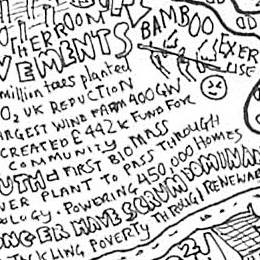 HERROOM
BAMBOO
EXER
CISE
VEMENTS
million trees planted
O2 UK REDUCTION
ARGEST WIND FARM 400GW
CREATED £442K FUND FOR
COMMUNITY
BIOMASS
UTH FIRST
WER PLANT TO PASS THROUGH
OLOGY. POWERING 450,000 HOMES
ONGER HAVE SCRUM DOMINAN
TACKLING POVERTY THROUGH RENEWAB